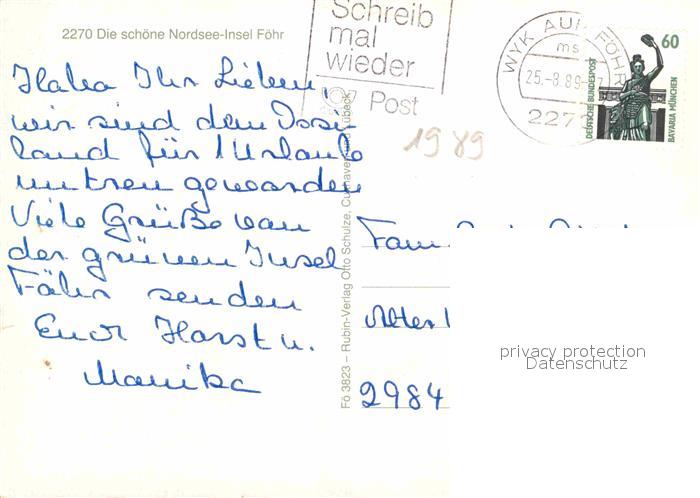 2270 Die schöne Nordsee-Insel Föhr
Schreib
mal
wieder
Post
WYK AUF FÖHR
ms
25.-8.89-
2270
60
DEUTSCHE BUNDESPOST
BAVARIA MÜNCHEN
1989
Hallo Ihr Lieben,
wir sind dem
land für 1 Urlaub
untreu geworden
Viele Grüße von
der grünen Insel
Föhr senden
Euch Horst u.
Monika
Fö 3823 – Rubin-Verlag Otto Schulze, Cuxhaven Lübeck
Fam.
Alter
2984
privacy protection
Datenschutz